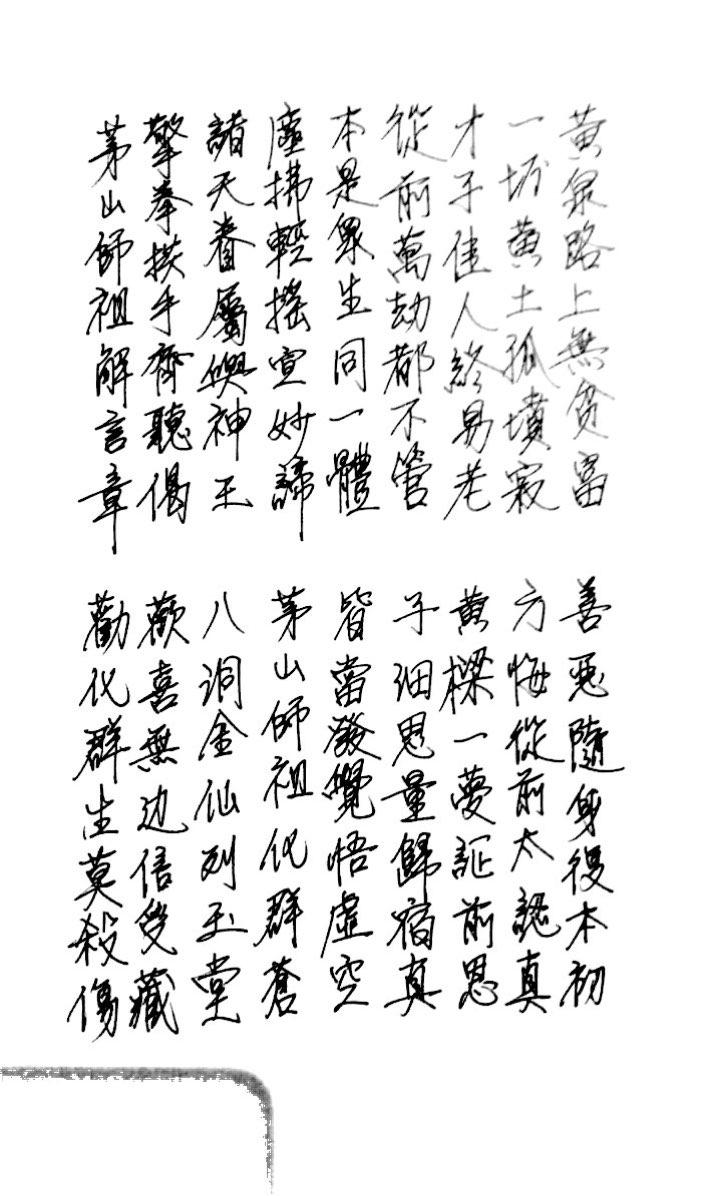 黃泉路上無貧富 善惡隨身復本初
一坯黃土孤墳寂 方悔從前太認真
才子佳人終易老 黃樑一夢証前恩
從前萬劫都不管 子細思量歸宿真
本是眾生同一體 皆當發覺悟虛空
塵拂輕搖宣妙諦 茅山師祖化群蒼
諸天眷屬與神王 八洞金仙列玉堂
擎拳扶手齊聽偈 歡喜無边信受藏
茅山師祖解言章 勸化群生莫殺傷